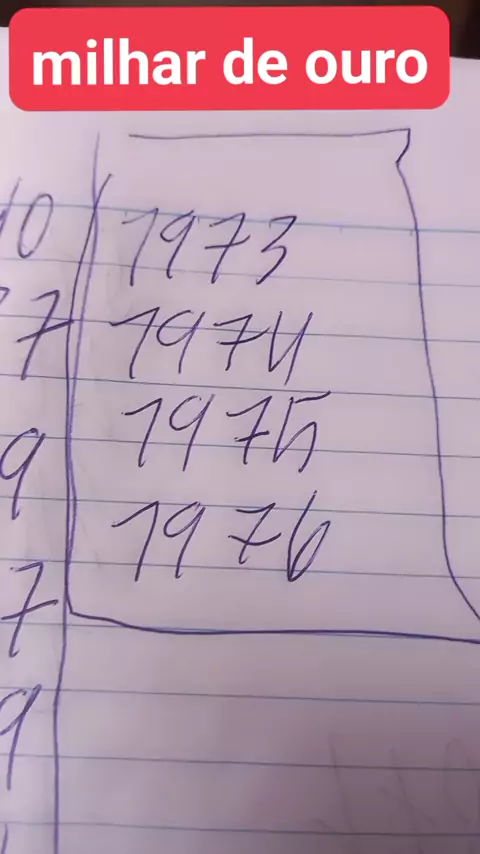 milhar de ouro
10
1973
7
1974
1975
9
1976
7
9